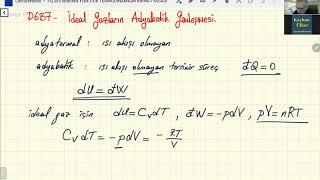 DS67 - İdeal Gazların Adyabatik Genleşmesi.
adyatermal : ısı alışı olmayan
adyabatik : ısı alışı olmayan tersinir süreç đQ = 0
dU = đW
ideal gaz için dU = CᵥdT , đW = -pdV , pV = nRT
CᵥdT = -pdV = - RT/V
Kayhan
Ülker